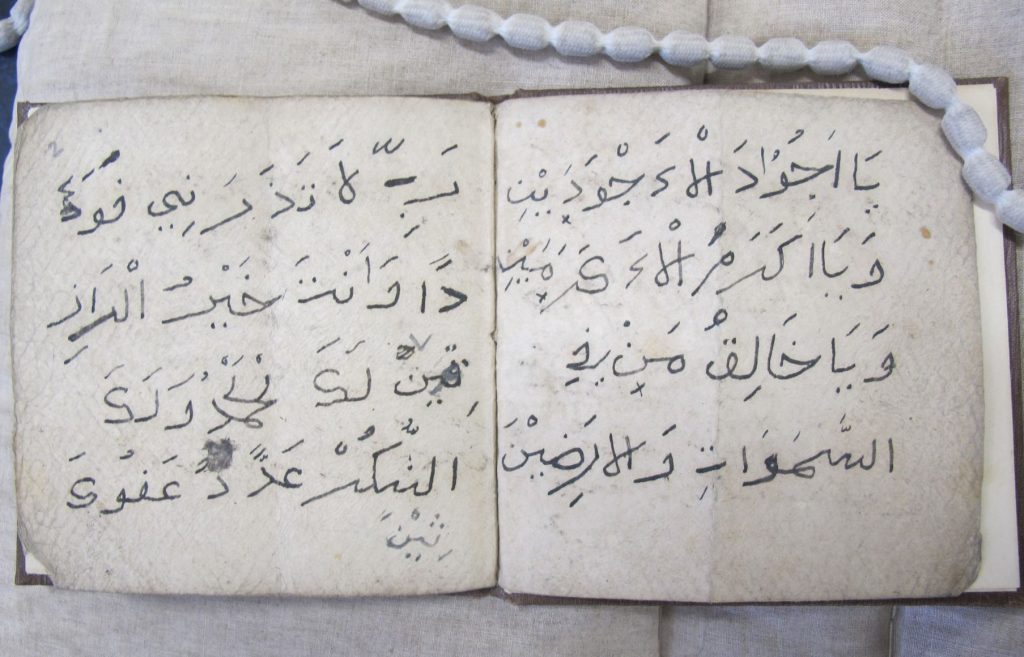 يَا اَجَوُادَ الْاءَجْوَدَيْنِ
وَيَا اَكَرَمُ الْاءَكَرَمَيْنِ
وَيَا خَالِقُ مَنْ فِي
السَّمَوَاتِ وَالارَضِيْنَ
2
رَبِّ لَا تَذَرَنِي
دًا وَاَنْتَ خَيْرُ الْرَازِ
قِيْنَ لَكَ وَلَكَ
الشُّكُرْ عَدَّدَ عَفُوكَ